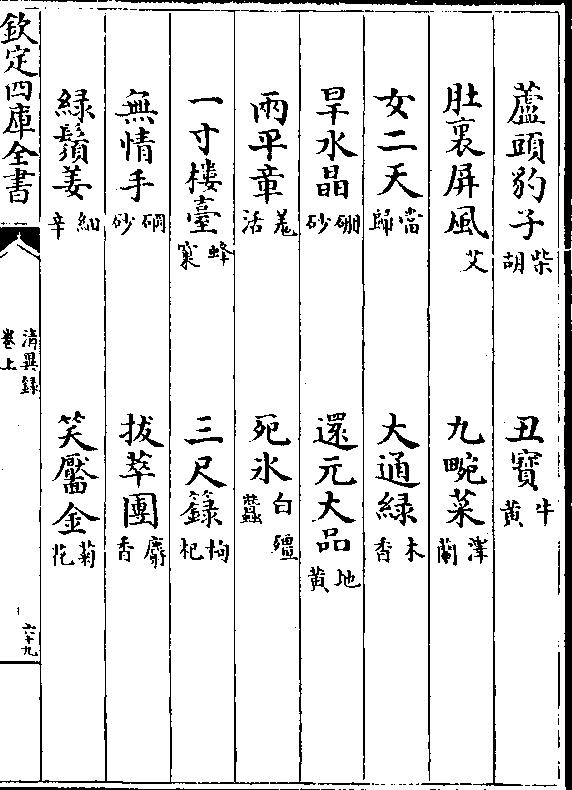 蘆頭豹子柴胡 丑寶牛黃
肚裏屏風艾 九畹菜澤蘭
女二天當歸 大通綠木香
旱水晶硼砂 還元大品地黃
兩平章羗活 死氷白殭蠶
一寸樓臺蜂窠 三尺籙枸杞
無情手硇砂 拔萃團麝香
綠鬚姜細辛 笑靨金菊花
欽定四庫全書
清異録
卷上
六十九